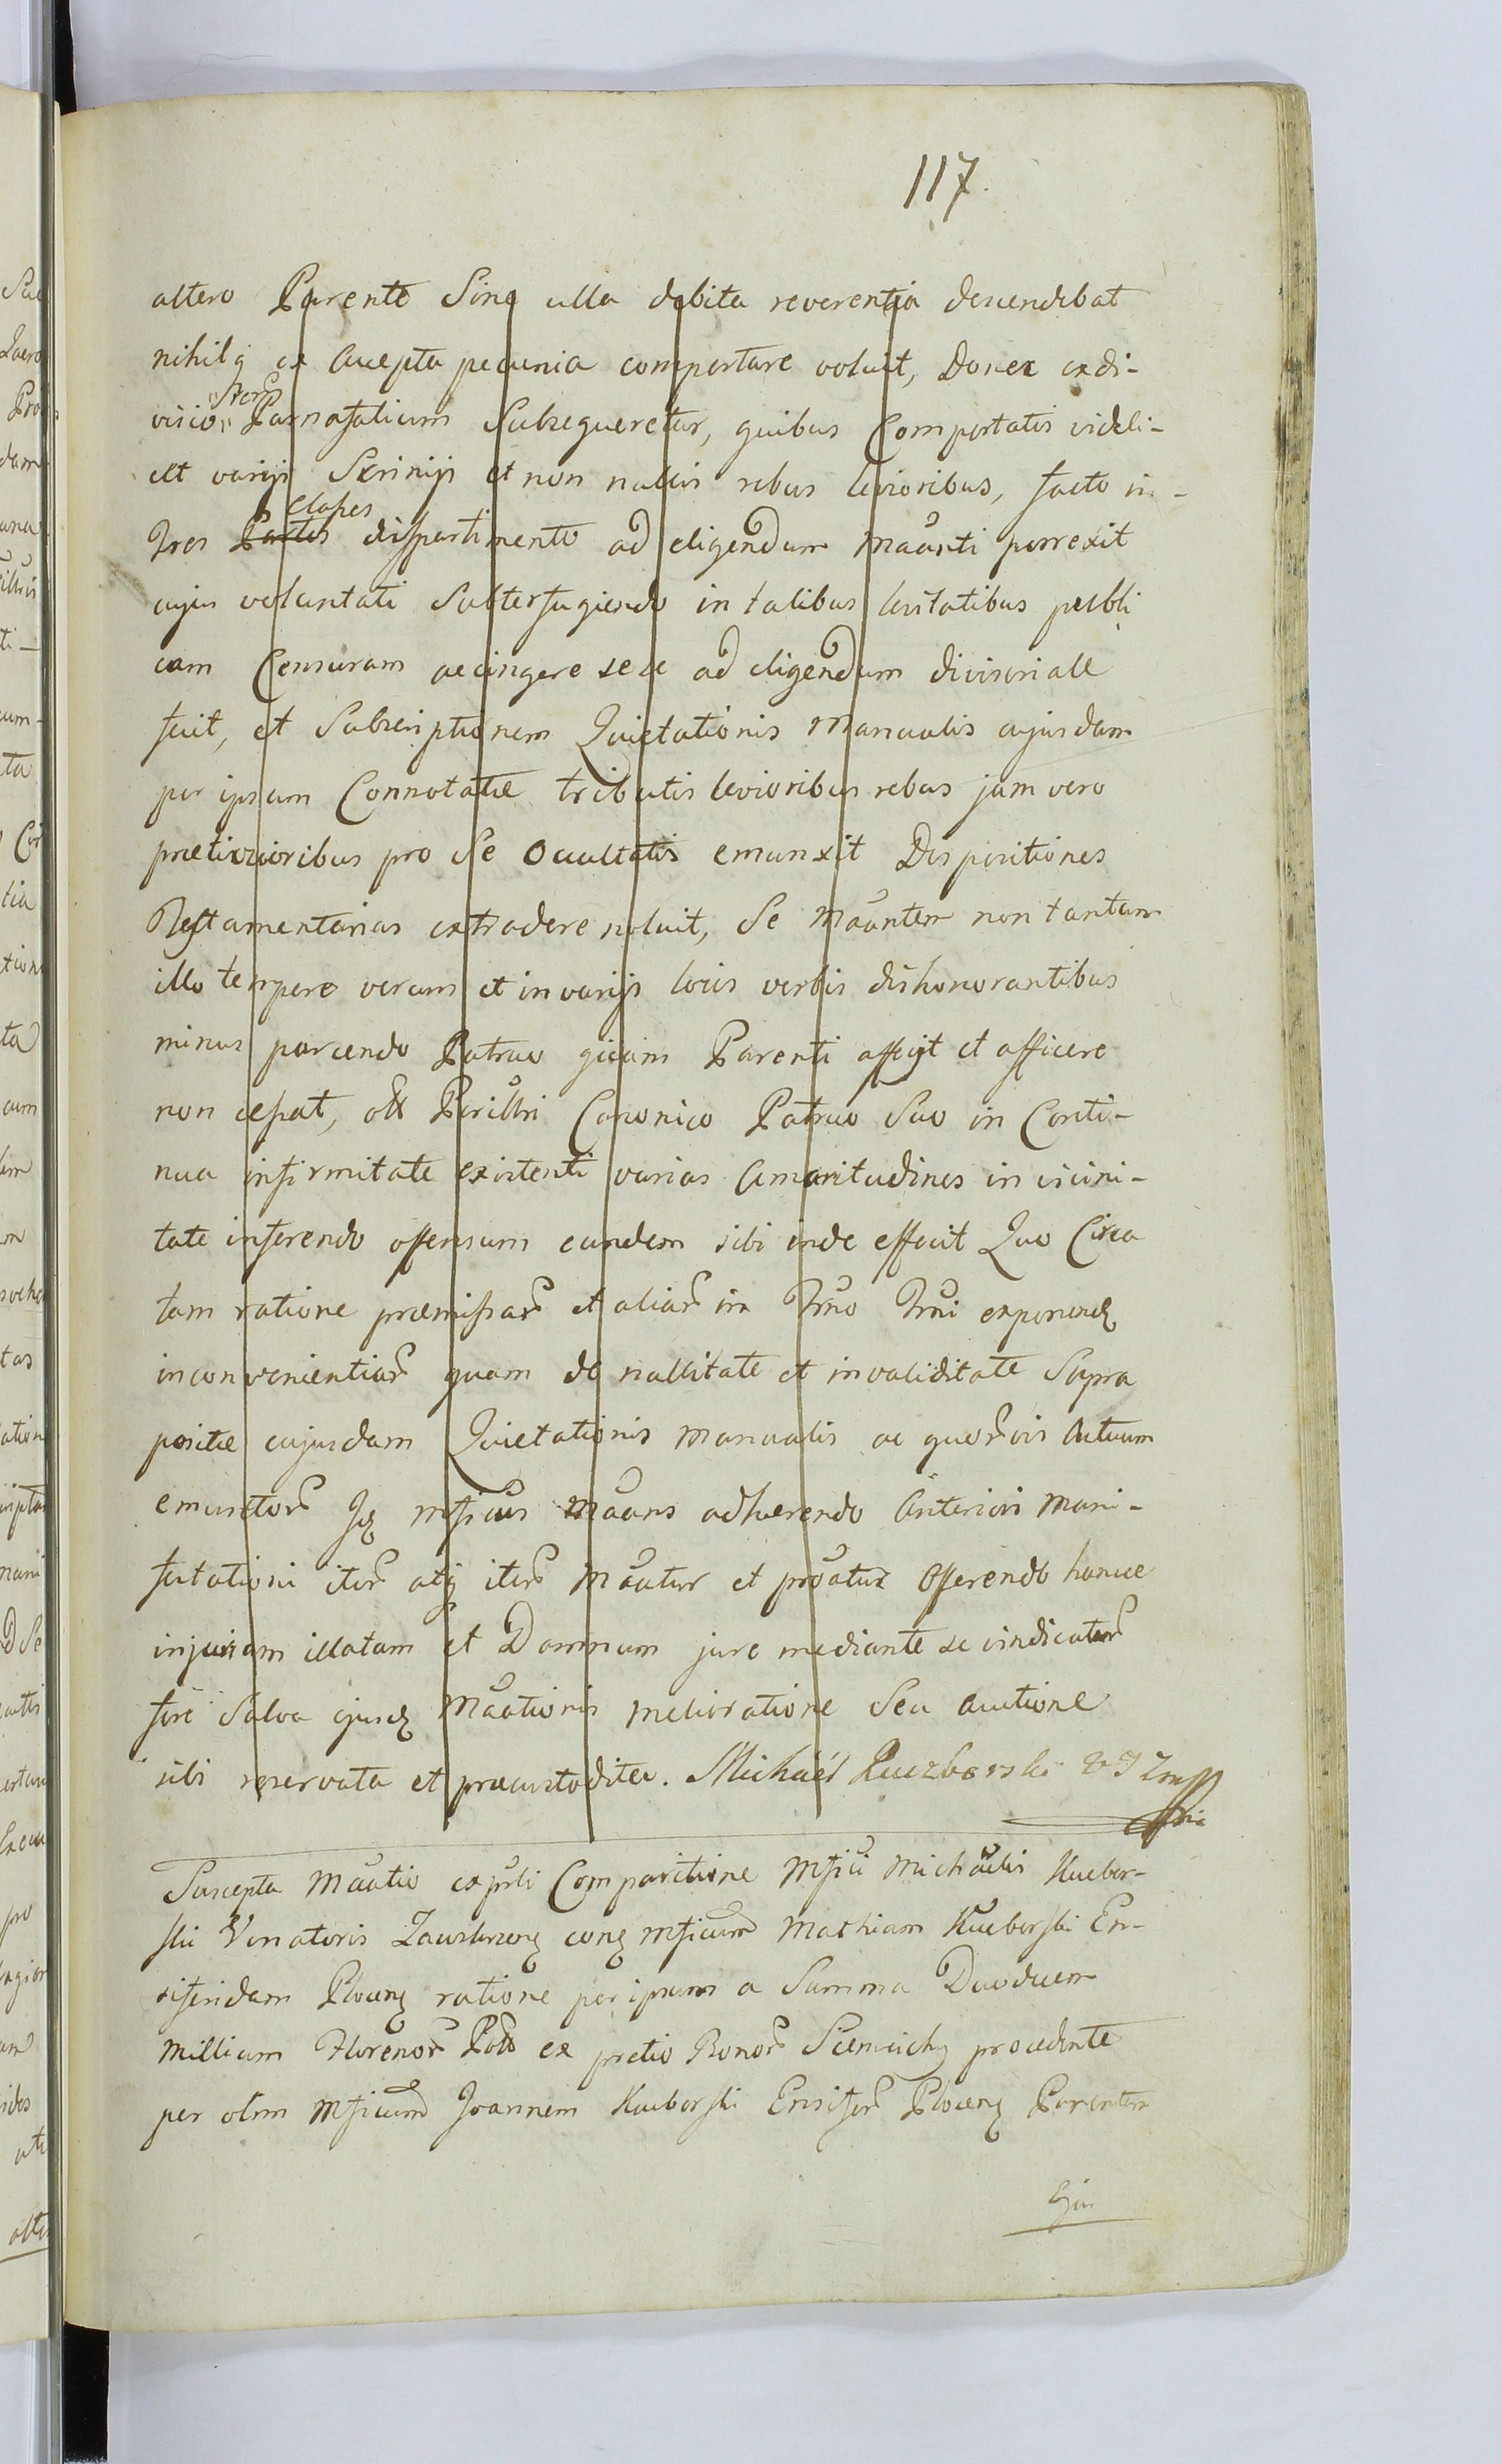 117.
altero Parente Sine ulla debita reverentia descendebat
nihilq ex accepta pecunia comportare voluit, Donec exdi-
visio Parnafalium Subsequeretur, quibus Comportatis videli-
cet varijs Scrinijs et non nullis rebus levioribus, facto in
tres Classes dispartimento ad eligendum Maanti porrexit
cujus voluntati Subterfugiendo in talibus levitatibus publi
cam Censuram accingere sese ad eligendum divisoriale
fuit, et Subscriptionem Quietationis Manualis cujusdam
per ipsum Connotatæ tributis levioribus rebus jam vero
prætiosioribus pro Se Occultatis emunxit Dispositiones
Testamentarias extradere noluit, Se Maantem non tantum
illo tempore verum et in varijs locis verbis dishonorantibus
minus parcendo Patruo quam Parenti affecit et afficere
non cessat, Perillri Canonico Patruo Suo in Conti-
nua infirmitate existenti varias Amaritudines in vicini-
tate inferendo offensum eundem sibi inde effecit Quo Circa
tam ratione præmissar et aliar in Trno Trni exponend
inconvenientiar quam de nullitate et invaliditate Supra
positæ cujusdam Quietationis Manualis ac quorvis Actuum
emunctor Mficus Maans adhærendo Anteriori Mani-
festationi iter atq iter Maatur et proatur Offerendo hancce
injuriam illatam et Damnum jure mediante se vindicatur
fore Salva ejusd Maationis melioratione Seu auctione
sibi reservata et præcustodita. Michaël Kuczborski
Suscepta Maatio ex prsti Comparitione Mfici Michaelis Kucbor-
ski Venatoris Zawskrzen con Mficum Mathiam Kucborski En-
siferidam Plocen ratione per ipsum a Summa Duodecem
Millium Florenor Pol ex pretio Bonor procedente
per olim Mficum Joannem Kucborski Ensifer Plocen Parentem
Ejus